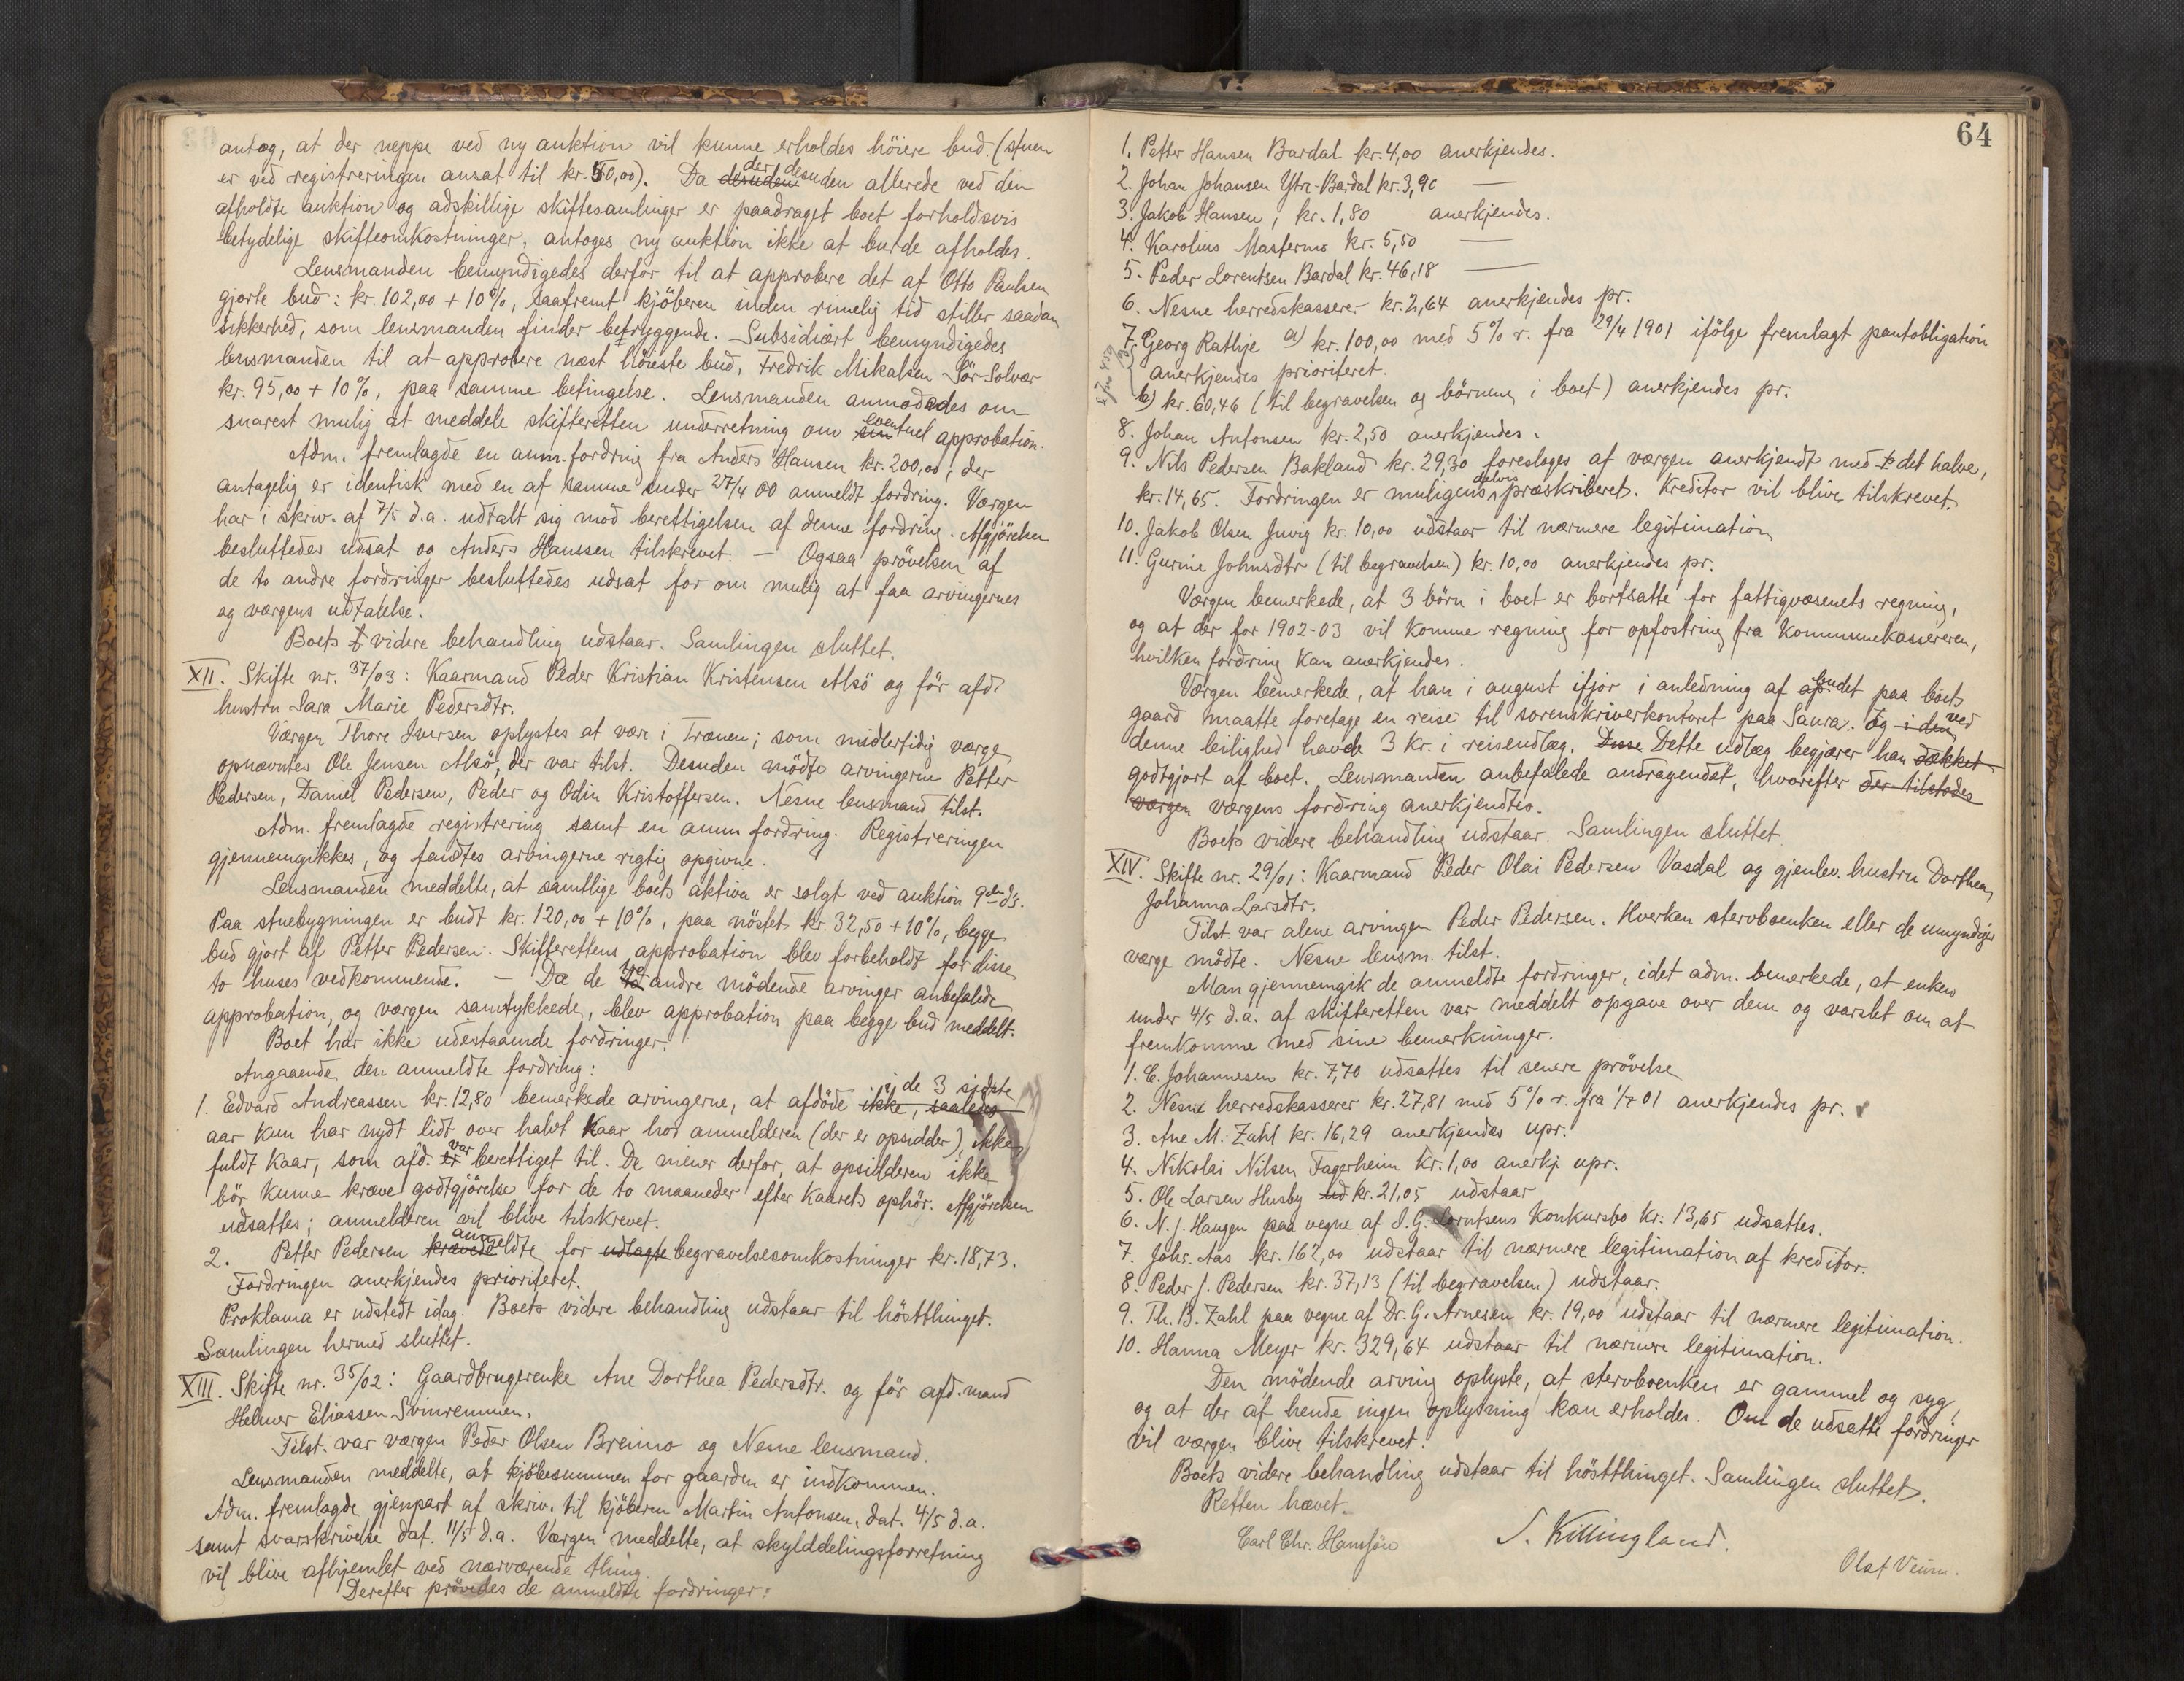 antog, at der neppe ved ny auktion vil kunne erholdes höiere bud. (stuen
er ved registreringen ansat til kr. 50,00). Da desuden der desuden allerede ved den
afholdte auktion og adskillige skiftesamlinger er paadraget boet forholdsvis
betydelige skifteomkostninger, antoges ny auktion ikke at burde afholdes.
Lensmanden bemyndigedes derfor til at approbere det af Otto Paulsen
gjorte bud: kr. 102,00 + 10%, saafremt kjöberen inden rimelig tid stiller saadan
sikkerhed, som lensmanden finder betryggende. Subsidiært bemyndigedes
lensmanden til at approbere næst höieste bud, Fredrik Mikalsen Sör-Solvær
kr. 95,00 + 10%, paa samme betingelse. Lensmanden anmodedes om
snarest mulig at meddele skifteretten underretning om sin eventuel approbation.
Adm. fremlagde en anm. fordring fra Anders Hansen kr. 200,00, der
antagelig er identisk med en af samme under 27/4 00 anmeldt fordring. Værgen
har i skriv. af 7/5 d.a. udtalt sig mod berettigelsen af denne fordring. Afgjörelsen
besluttedes udsat og Anders Hanssen tilskrevet. — Ogsaa prövelsen af
de to andre fordringer besluttedes udsat for om mulig at faa arvingernes
og værgens udtalelse.
Boets videre behandling udstaar. Samlingen sluttet.
XII. Skifte nr. 37/03: Kaarmand Peder Kristian Kristensen Alsö og för afd.
hustru Sara Marie Pedersdtr.
Værgen Thore Iversen oplystes at være i Trænen; som midlertidig værge
opnævntes Ole Jensen Alsö, der var tilst. Desuden mödte arvingerne Petter
Pedersen, Daniel Pedersen, Peder og Odin Kristoffersen. Nesne lensmand tilst.
Adm. fremlagde registrering samt en anm. fordring. Registreringen
gjennemgikkes, og fandtes arvingerne rigtig opgivne.
Lensmanden meddelte, at samtlige boets aktiva er solgt ved auktion 9de ds.
Paa stuebygningen er budt kr. 120,00 + 10%, paa nöstet kr. 32,50 + 10%, begge
bud gjort af Petter Pedersen. Skifterettens approbation blev forbeholdt for disse
to huses vedkommende. — Da de to tre andre mödende arvinger anbefalede
approbation, og værgen samtykkede, blev approbation paa begge bud meddelt.
Boet har ikke udestaaende fordringer.
Angaaende den anmeldte fordring:
1. Edvard Andreassen kr. 12,80 bemerkede arvingerne, at afdöde ikke, saaledes i de 3 sidste
aar kun har nydt lidt over halvt kaar hos anmelderen (der er opsidder), ikke
fuldt kaar, som afd. er var berettiget til. De mener derfor, at opsidderen ikke
bör kunne kræve godtgjörelse for de to maaneder efter kaarets ophör. Afgjörelsen
udsattes; anmelderen vil blive tilskrevet.
2. Petter Pedersen krævede anmeldte for udlagte begravelsesomkostninger kr. 18,73.
Fordringen anerkjendes prioriteret.
Proklama er udstedt idag. Boets videre behandling udstaar til höstthinget.
Samlingen hermed sluttet.
XIII. Skifte nr. 35/02: Gaardbrugerenke Ane Dorthea Pedersdtr. og för afd. mand
Helmer Eliassen Svinremmen.
Tilst. var værgen Peder Olsen Breimo og Nesne lensmand.
Lensmanden meddelte, at kjöbesummen for gaarden er indkommen.
Adm. fremlagde gjenpart af skriv. til kjöberen Martin Antonsen, dat. 4/5 d.a.
samt svarskrivelse dat. 11/5 d.a. Værgen meddelte, at skylddelingsforretning
vil blive afhjemlet ved nærværende thing.
Derefter prövedes de anmeldte fordringer:
64
1. Petter Hansen Bardal kr. 4,00 anerkjendes.
2. Johan Johansen Ytre-Bardal kr. 3,90 —
3. Jakob Hansen, kr. 1,80 anerkjendes.
4. Karolius kr. 5,50 —
5. Peder Lorentsen Bardal kr. 46,18 —
6. Nesne herredskasserer kr. 2,64 anerkjendes pr.
7. Georg Rathje a) kr. 100,00 med 5% r. fra 29/4 1901 ifölge fremlagt pantobligation
anerkjendes prioriteret.
b) kr. 60,46 (til begravelsen og börnene i boet) anerkjendes pr.
8. Johan Antonsen kr. 2,50 anerkjendes.
9. Nils Pedersen Bakland kr. 29,30 foresloges af værgen anerkjendt med det halve,
kr. 14,65. Fordringen er muligens delvis præskriberet. Kreditor vil blive tilskrevet.
10. Jakob Olsen Juvig kr. 10,00 udstaar til nærmere legitimation
11. Gurine Johnsdtr (til begravelsen) kr. 10,00 anerkjendes pr.
Værgen bemerkede, at 3 börn i boet er bortsatte for fattigvæsenets regning,
og at der for 1902-03 vil komme regning for opfostring fra kommunekassereren,
hvilken fordring kan anerkjendes.
Værgen bemerkede, at han i august ifjor i anledning af budet paa boets
gaard maatte foretage en reise til sorenskriverkontoret paa Saura. Og i den ved
denne leilighed havde 3 kr. i reiseudlæg. Disse Dette udlæg begjærer han dækket
godtgjort af boet. Lensmanden anbefalede andragendet, hvorefter der tilstodes
værgen værgens fordring anerkjendtes.
Boets videre behandling udstaar. Samlingen sluttet
XIV. Skifte nr. 29/01: Kaarmand Peder Olai Pedersen Vasdal og gjenlev. hustru Dorthea
Johanna Larsdtr.
Tilst. var alene arvingen Peder Pedersen. Hverken stervboenken eller de umyndiges
værge mödte. Nesne lensm. tilst.
Man gjennemgik de anmeldte fordringer, idet adm. bemerkede, at enken
under 4/5 d.a. af skifteretten var meddelt opgave over dem og varslet om at
fremkomme med sine bemerkninger.
1. E. Johannesen kr. 7,70 udsattes til senere prövelse
2. Nesne herredskasserer kr. 27,81 med 5% r. fra 1/7 01 anerkjendes pr.
3. Ane M. Zahl kr. 16,29 anerkjendes upr.
4. Nikolai Nilsen Fagerheim kr. 1,00 anerkj. upr.
5. Ole Larsen Husby ud kr. 21,05 udstaar
6. N. J. Haugen paa vegne af S. G. Lorntsens konkursbo kr. 13,65 udsattes.
7. Johs. Aas kr. 162,00 udstaar til nærmere legitimation af kreditor.
8. Peder J. Pedersen kr. 37,13 (til begravelsen) udstaar.
9. Th. B. Zahl paa vegne af Dr. G. Arnesen kr. 19,00 udstaar til nærmere legitimation.
10. Hanna Meyer kr. 329,64 udstaar til nærmere legitimation.
Den mödende arving oplyste, at stervboenken er gammel og syg,
og at der af hende ingen oplysning kan erholdes. Om de udsatte fordringer
vil værgen blive tilskrevet.
Boets videre behandling udstaar til höstthinget. Samlingen sluttet.
Retten hævet.
Carl Chr. Hanssön
S. Killingland.
Olaf Veum.